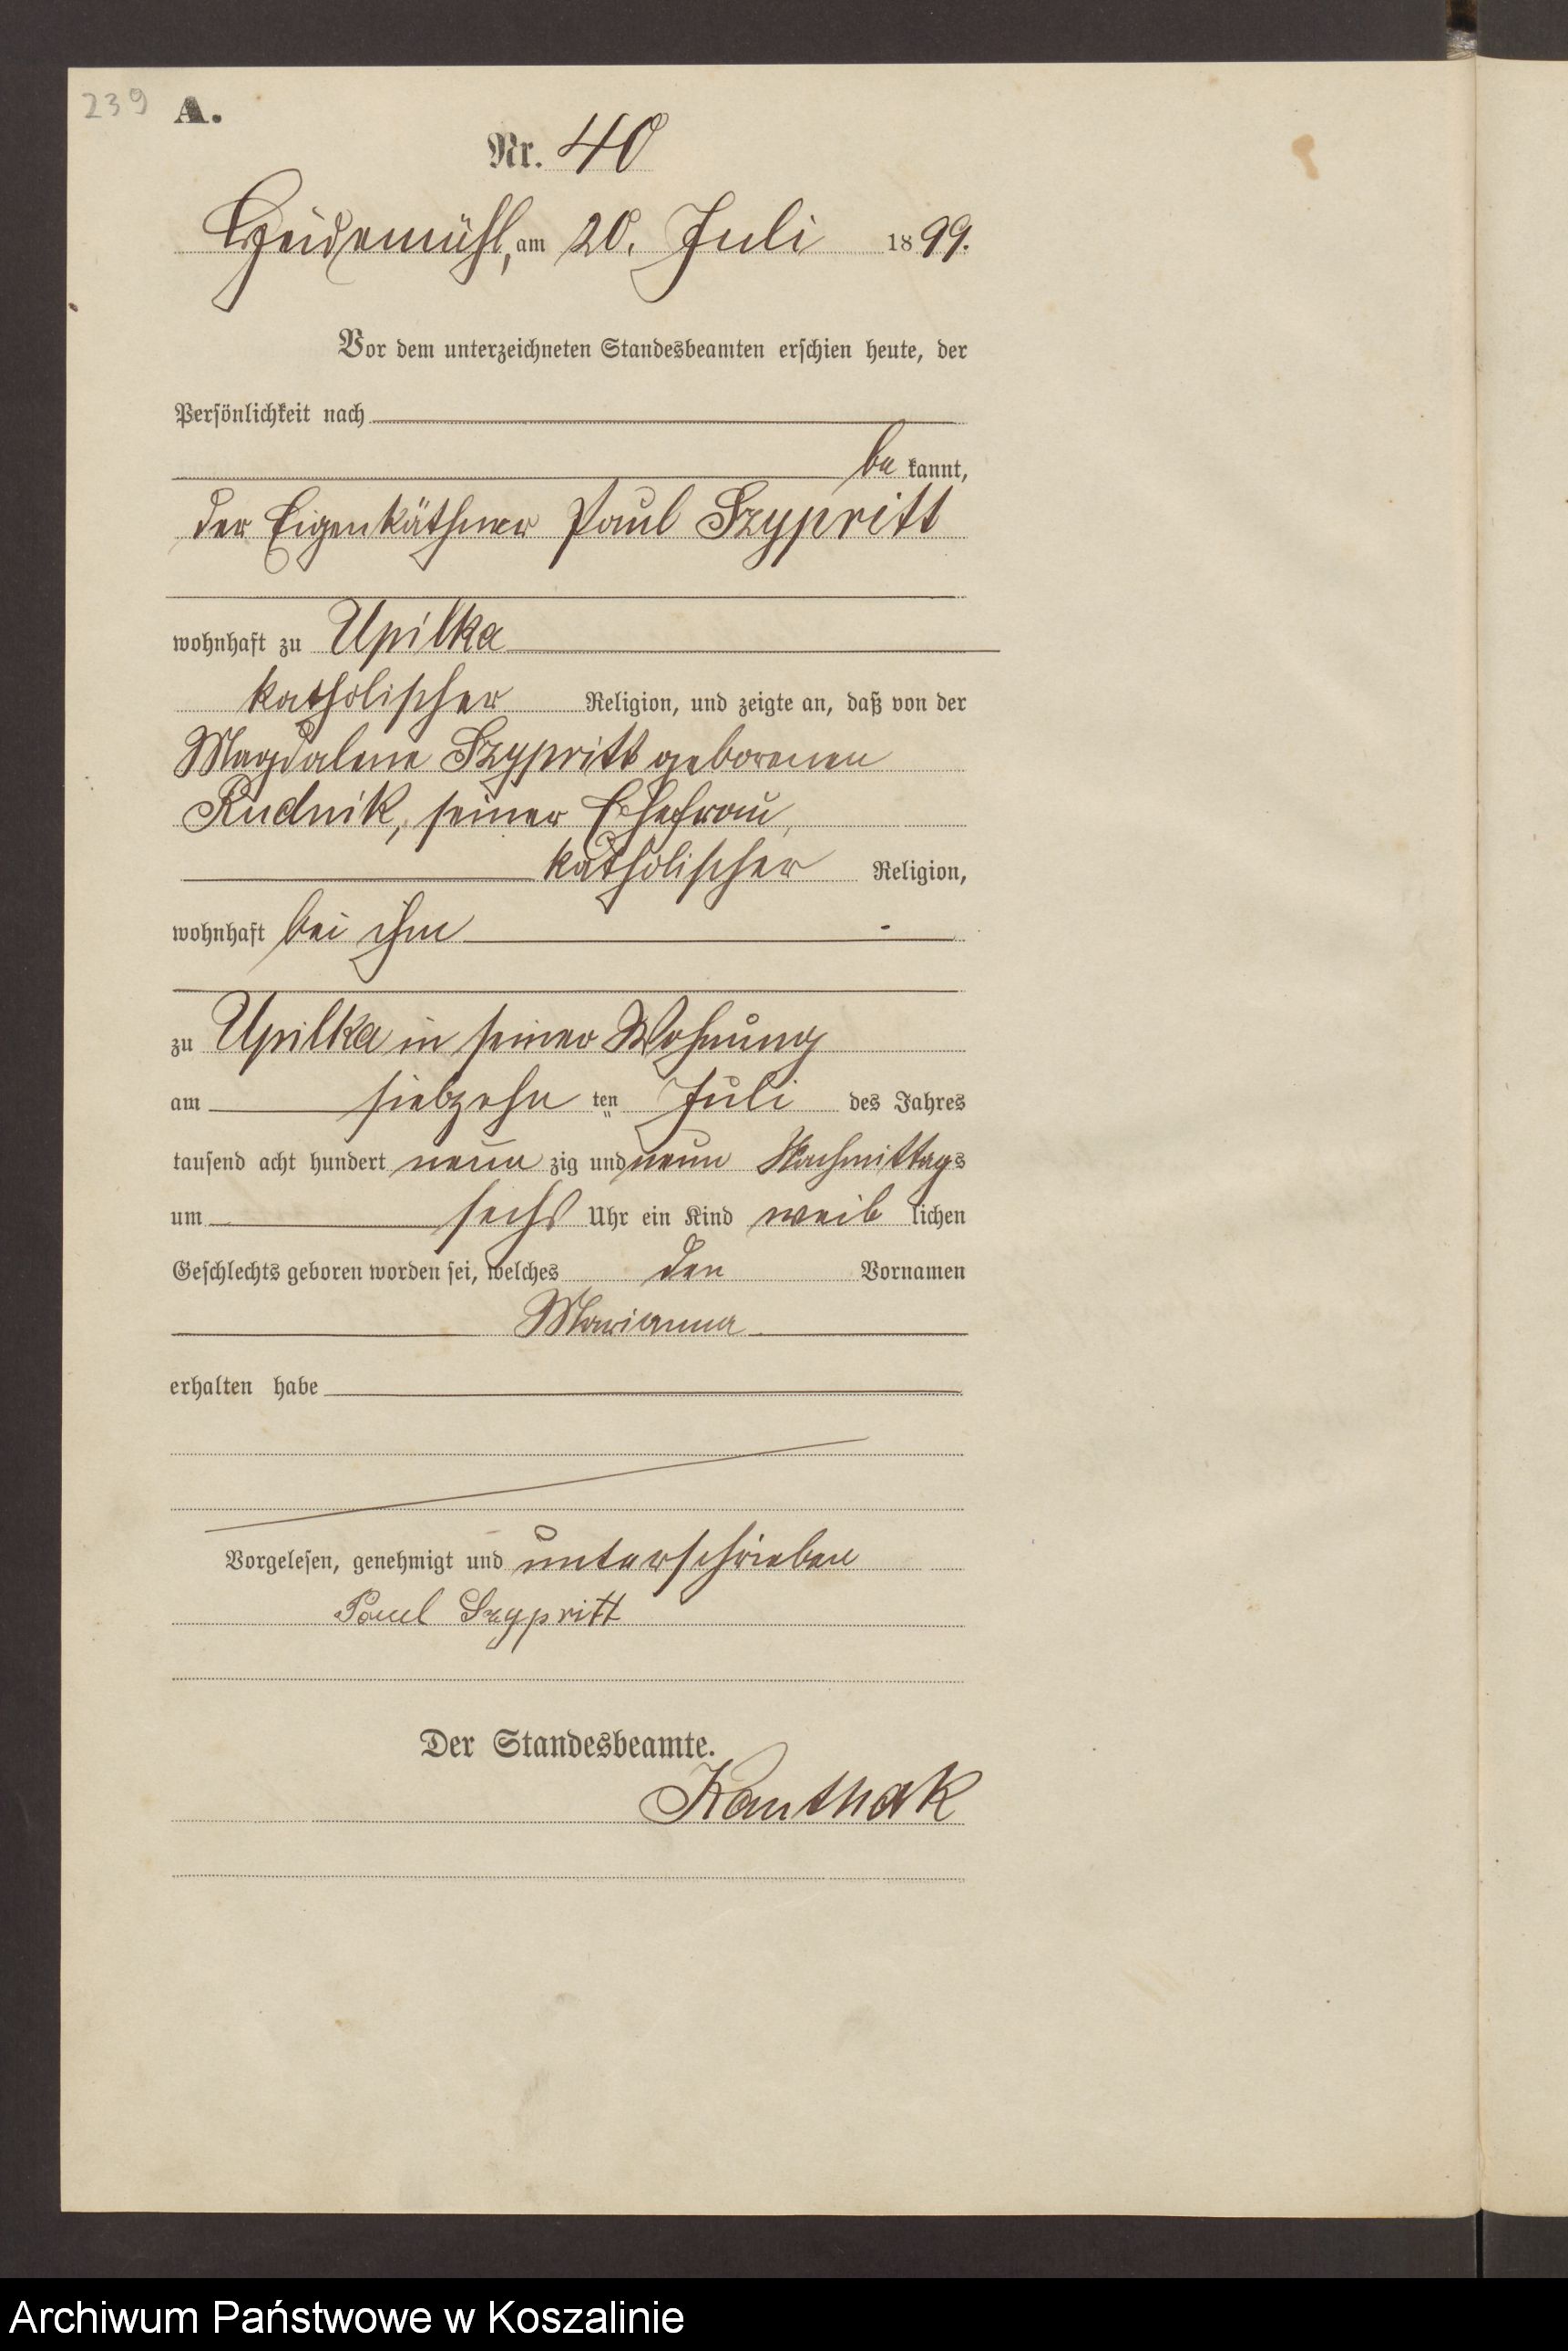 239 A.
Nr. 40
Heidemühl, am 20. Juli 1899.
Vor dem unterzeichneten Standesbeamten erschien heute, der
Persönlichkeit nach
be kannt,
der Eigenkäthner Paul Szypritt
wohnhaft zu Upilka
katholischer Religion, und zeigte an, daß von der
Magdalene Szypritt geborenen
Rudnik, seiner Ehefrau,
katholischer Religion,
wohnhaft bei ihm
zu Upilka in seiner Wohnung
am siebzehn ten Juli des Jahres
tausend acht hundert neun zig und neun Nachmittags
um sechs Uhr ein Kind weib lichen
Geschlechts geboren worden sei, welches den Vornamen
Marianna
erhalten habe
Vorgelesen, genehmigt und unterschrieben
Paul Szypritt
Der Standesbeamte.
Kanthak
Archiwum Państwowe w Koszalinie